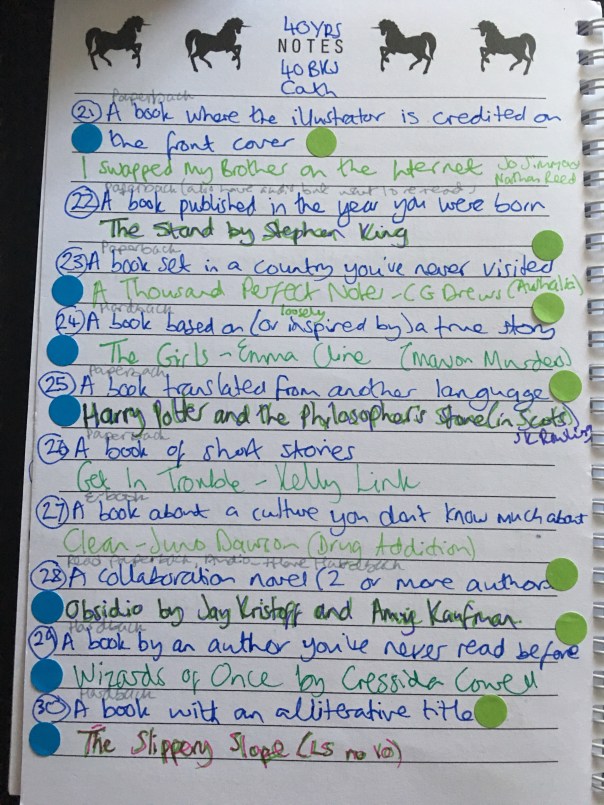 40 YRS
NOTES
40 BKS
Cath
Paperback
(21) A book where the illustrator is credited on
the front cover
I swapped my Brother on the Internet Jo Simmons
Nathan Reed
Paperback (also have audio but want to re read)
(22) A book published in the year you were born
The Stand by Stephen King
Paperback
(23) A book set in a country you've never visited
A Thousand Perfect Notes - CG Drews (Australia)
Hardback
loosely
(24) A book based on (or inspired by) a true story
The Girls - Emma Cline (Manson Murders)
Paperback
(25) A book translated from another language
Harry Potter and the Philosopher's Stone (in Scots)
JK Rowling
(26) A book of short stories
Paperback
Get In Trouble - Kelly Link
(27) A book about a culture you don't know much about
E-book
Clean - Juno Dawson (Drug Addiction)
Read Paperback, Audio - Have Hardback
(28) A collaboration novel (2 or more authors
Obsidio by Jay Kristoff and Amie Kaufman.
Hardback
(29) A book by an author you've never read before
Wizards of Once by Cressida Cowell
Hardback
(30) A book with an alliterative title
The Slippery Slope (LS no 10)